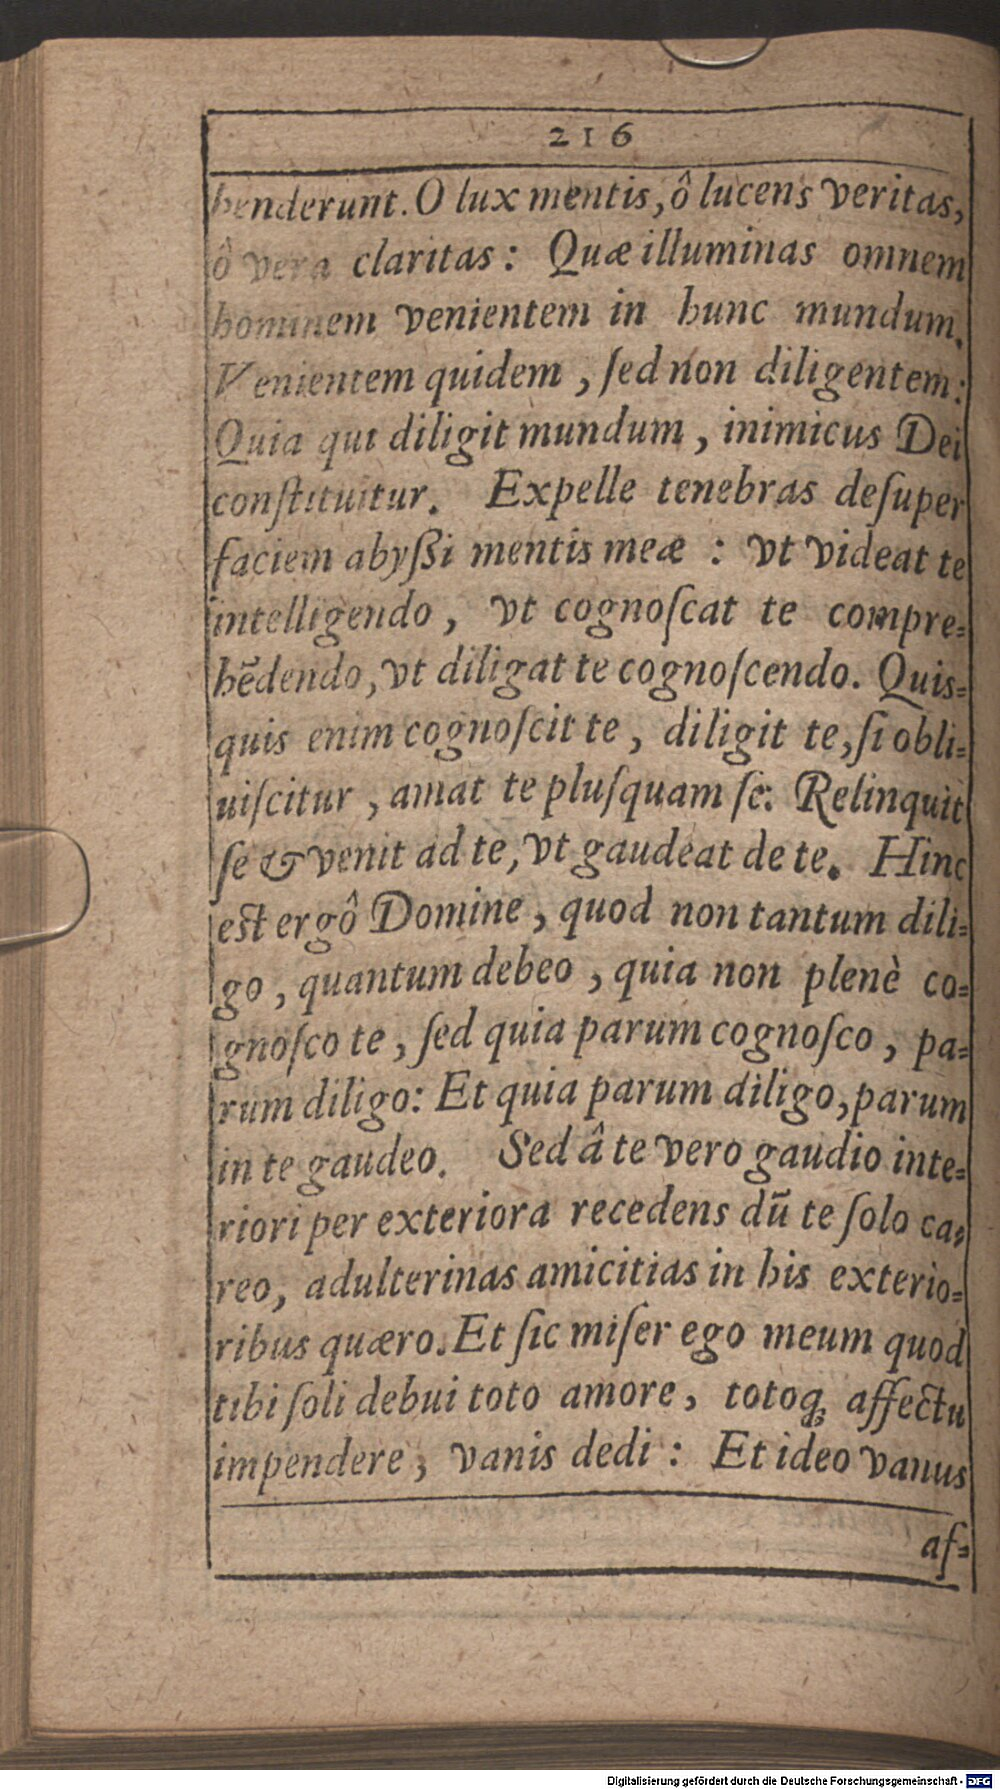 216
henderunt. O lux mentis, ô lucens veritas,
ô vera claritas: Quæ illuminas omnem
hominem venientem in hunc mundum.
Venientem quidem, ſed non diligentem:
Quia qui diligit mundum, inimicus Dei
conſtituitur. Expelle tenebras deſuper
faciem abyſſi mentis meæ: vt videat te
intelligendo, vt cognoſcat te compre-
hēdendo, vt diligat te cognoſcendo. Quis-
quis enim cognoſcit te, diligit te, ſi obli-
uiſcitur, amat te pluſquam ſe: Relinquit
ſe & venit ad te, vt gaudeat de te. Hinc
eſt ergô Domine, quod non tantum dili-
go, quantum debeo, quia non plenè co-
gnoſco te, ſed quia parum cognoſco, pa-
rum diligo: Et quia parum diligo, parum
in te gaudeo. Sed â te vero gaudio inte-
riori per exteriora recedens dū te ſolo ca-
reo, adulterinas amicitias in his exterio-
ribus quæro. Et ſic miſer ego meum quod
tibi ſoli debui toto amore, totoq́; affectu
impendere, vanis dedi: Et ideo vanus
af-
Digitalisierung gefördert durch die Deutsche Forschungsgemeinschaft - DFG